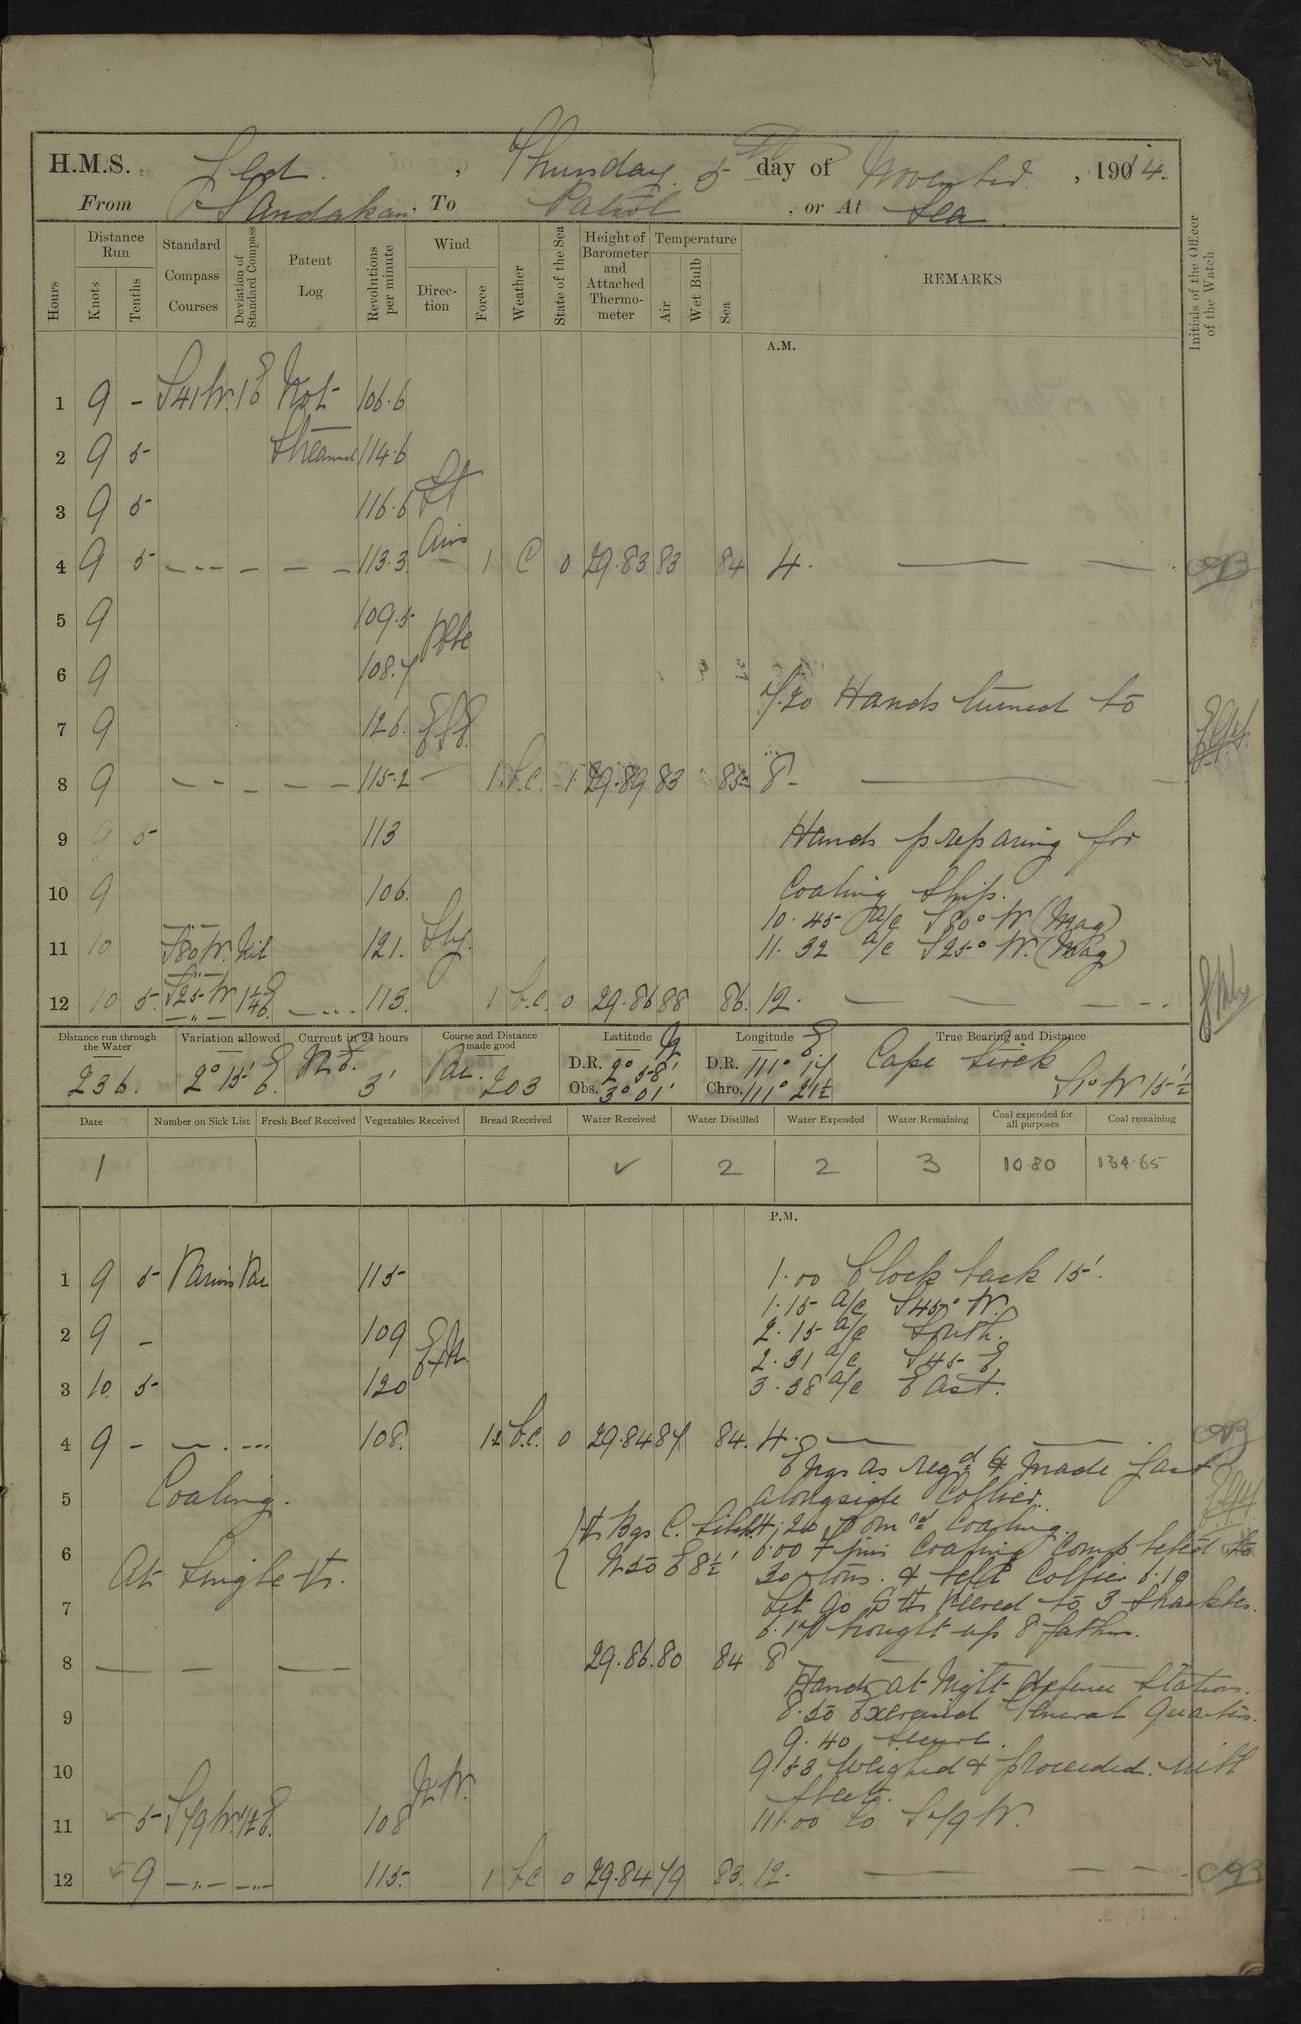 H.M.S. , Thursday 5th day of November , 1914.
From Sandakan To Patrol , or At Sea
Hours
Distance Run
Knots
Tenths
Standard Compass Courses
Deviation of Standard Compass
Patent Log
Revolutions per minute
Wind
Direction
Force
Weather
State of the Sea
Height of Barometer and Attached Thermometer
Temperature
Air
Wet Bulb
Sea
REMARKS
Initials of the Officer of the Watch
A.M.
1 9 - S41W 1E Not 106.6
2 9 5 Streamed 114.6
3 9 5 116.6 Lt
4 9 5 113.3 Airs 1 C 0 29.83 83 84 4.
5 9 109.5
6 9 108.7
7.20 Hands turned to
7 9 126. ESE
8 9 115.2 1 b.c. 1 29.89 83 85 8
9 9 5 113 Hands preparing for
10 9 106. Coaling Ship.
10.45 a/c S80° W (Mag)
11 10 S80W. Nil 121. Sly. 11.32 a/c S25° W. (Mag)
12 10 5 S25W 1¼E 113. 1 b.c. 0 29.86 88 86. 12.
Distance run through the Water 236.
Variation allowed 2° 15' E.
Current in 24 hours 3'
Course and Distance made good Var. 203
Latitude N D.R. 2° 58' Obs. 3° 01'
Longitude E D.R. 111° 17 Chro. 111° 21½
True Bearing and Distance Cape Sirek S1°W 15½
Date
Number on Sick List
Fresh Beef Received
Vegetables Received
Bread Received
Water Received
Water Distilled
Water Expended
Water Remaining
Coal expended for all purposes
Coal remaining
1 ✓ 2 2 3 10.80 134.65
P.M.
1 9 5 Various Var 115 1.00 Clock back 15'.
1.15 a/c S45° W.
2 9 - 109 2.15 a/c South.
ExN. 2.31 a/c S45 E
3 10 5 120 3.38 a/c East.
4 9 - 108. 1.2 b.c. 0 29.84 87 84. 4.
Engs as reqd & made fast
5 Coaling. alongside Collier.
4.20 Comced Coaling.
6 N50 E 8½' 6.00 Coaling Completed
At Single 30 tons. & left Collier 6.10
7 Let go veered to 3 Shackles.
6.17 brought up 8 fathms.
8 29.86 80 84 8
Hands at Night defence Stations.
9 8.50 Exercised General Quarters.
9.40 Secure.
10 9.53 Weighed & proceeded with
NW. fleet.
11 5 S79W. 1½E. 108 11.00 Co S79W.
12 9 115. 1 bc 0 29.84 79 83. 12.